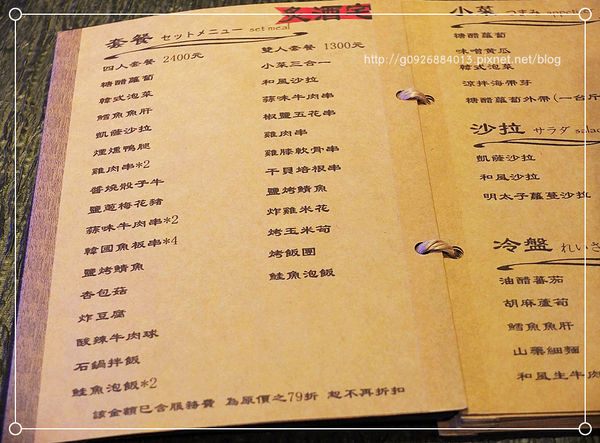 炙酒宅
套餐 セットメニュー set meal
四人套餐 2400元
糖醋蘿蔔
韓式泡菜
鱈魚魚肝
凱薩沙拉
煙燻鴨腿
雞肉串*2
醬燒骰子牛
鹽蔥梅花豬
蒜味牛肉串*2
韓國魚板串*4
鹽烤鯖魚
杏包菇
炸豆腐
酸辣牛肉球
石鍋拌飯
鮭魚泡飯*2
雙人套餐 1300元
小菜三合一
和風沙拉
蒜味牛肉串
椒鹽五花串
雞肉串
雞膝軟骨串
干貝培根串
鹽烤鯖魚
炸雞米花
烤玉米筍
烤飯團
鮭魚泡飯
該金額已含服務費 為原價之79折 恕不再折扣
小菜 つまみ
糖醋蘿蔔
味噌黃瓜
韓式泡菜
涼拌海帶芽
糖醋蘿蔔外帶(一台斤
沙拉 サラダ salad
凱薩沙拉
和風沙拉
明太子蘿蔓沙拉
冷盤 れいさ
油醋蕃茄
胡麻蘆筍
鱈魚魚肝
山藥細麵
和風生牛肉
http://g0926884013.pixnet.net/blog